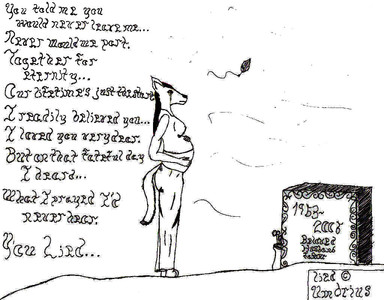 You told me you
would never leave me...
Never would we part.
Together for
eternity...
Our lifetime's just the start
I readily believed you...
I loved you very dear.
But on that fateful day
I heard...
What I prayed I'd
never hear.
You Lied...
Beloved
Husband
©